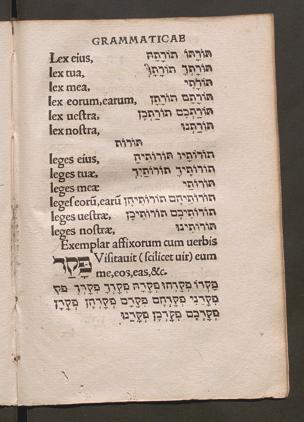 GRAMMATICAE
Lex eius, תּוֹרָתוֹ תּוֹרָתָהּ
lex tua, תּוֹרָתְךָ תּוֹרָתֵךְ
lex mea, תּוֹרָתִי
lex eorum, earum, תּוֹרָתָם תּוֹרָתָן
lex uestra, תּוֹרַתְכֶם תּוֹרַתְכֶן
lex nostra, תּוֹרָתֵנוּ
תּוֹרוֹת
leges eius, תּוֹרוֹתָיו תּוֹרוֹתֶיהָ
leges tuæ, תּוֹרוֹתֶיךָ תּוֹרוֹתַיִךְ
leges meæ תּוֹרוֹתַי
leges eorũ, earũ תּוֹרוֹתֵיהֶם תּוֹרוֹתֵיהֶן
leges uestræ, תּוֹרוֹתֵיכֶם תּוֹרוֹתֵיכֶן
leges nostræ, תּוֹרוֹתֵינוּ
Exemplar affixorum cum verbis
פָּקַד Visitauit (scilicet uir) eum
me, eos, eas, &c.